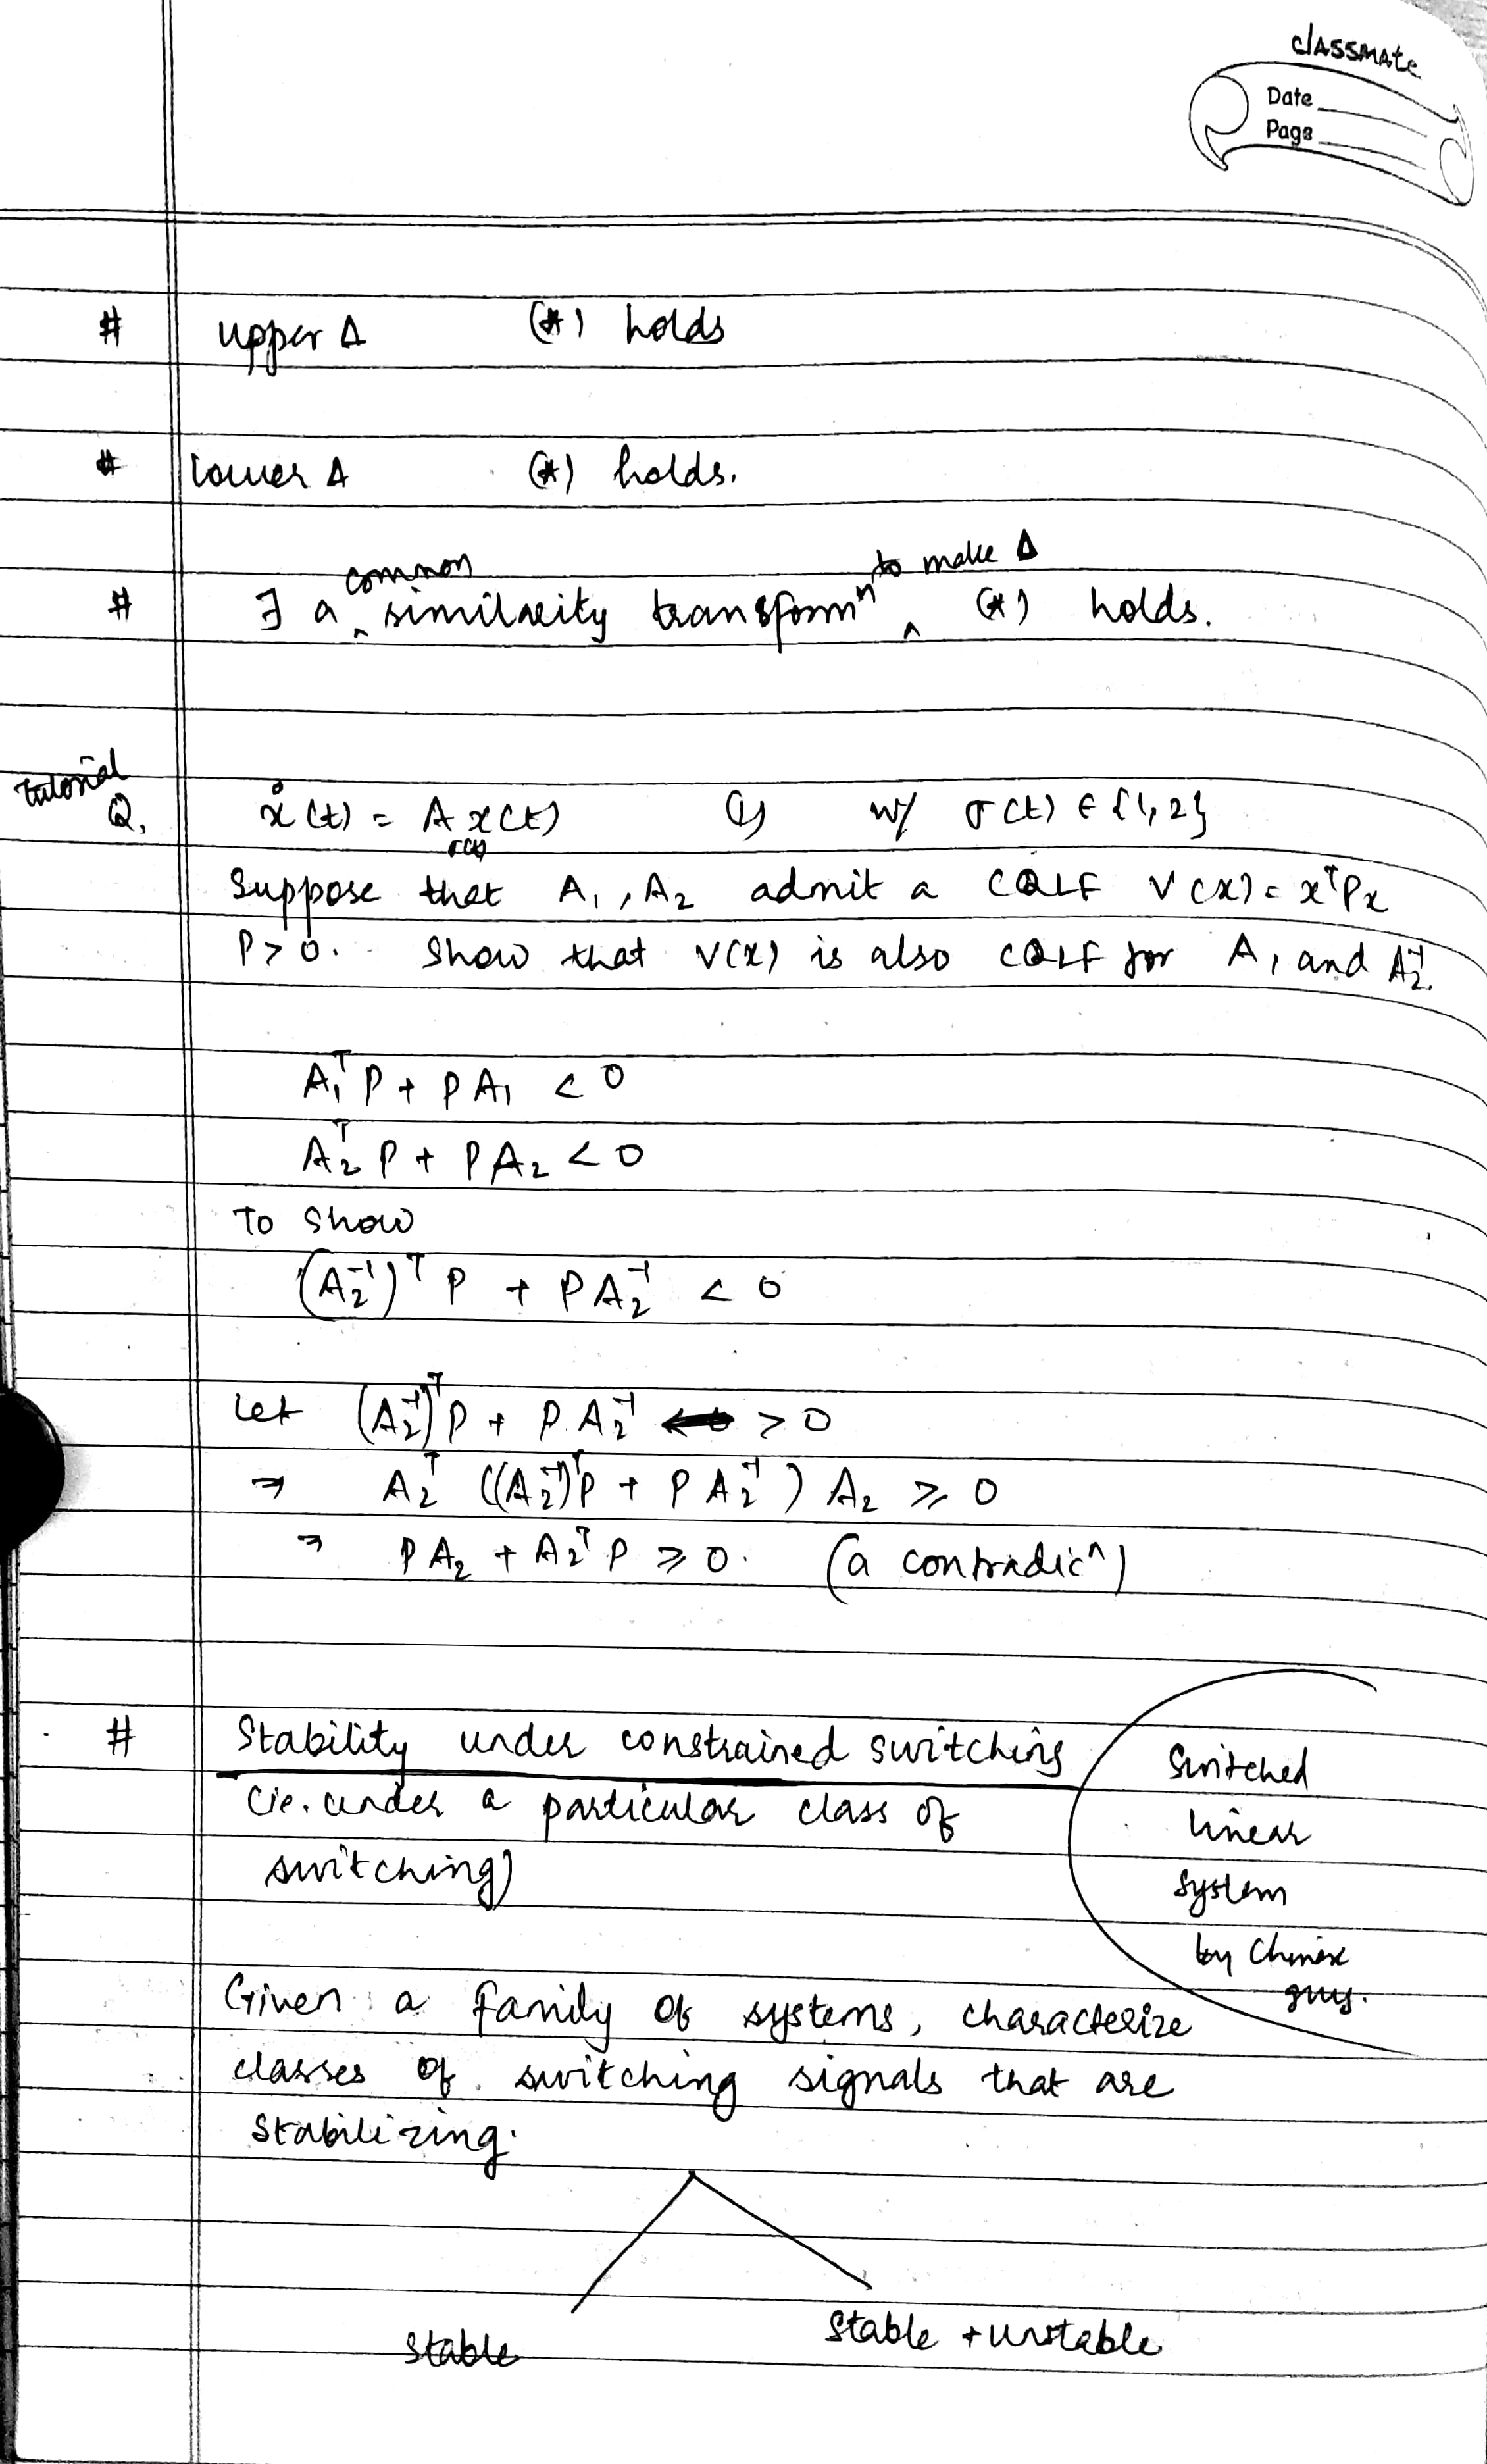 classmate
Date
Page
# upper Δ (*) holds
# lower Δ (*) holds.
# ∃ a common similarity transformⁿ to make Δ (*) holds.
Tutorial
Q. ẋ(t) = A_σ(t) x(t) (1) w/ σ(t) ∈ {1,2}
Suppose that A₁, A₂ admit a CQLF V(x) = xᵀPx
P > 0. Show that V(x) is also CQLF for A₁ and A₂⁻¹.
A₁ᵀP + PA₁ < 0
A₂ᵀP + PA₂ < 0
To show
(A₂⁻¹)ᵀ P + PA₂⁻¹ < 0
Let (A₂⁻¹)ᵀP + P.A₂⁻¹ > 0
⇒ A₂ᵀ ((A₂⁻¹)ᵀP + PA₂⁻¹) A₂ ⩾ 0
⇒ PA₂ + A₂ᵀP ⩾ 0. (a contradicⁿ)
# Stability under constrained switching
(ie. under a particular class of
switching)
Switched
linear
system
by Chinese
guy.
Given a family of systems, characterize
classes of switching signals that are
stabilizing.
Stable
Stable + unstable